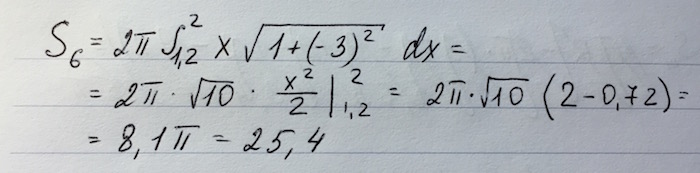 S₆ = 2π ∫₁,₂² x √(1+(-3)²) dx =
= 2π · √10 · x²/2 |₁,₂² = 2π · √10 (2-0,72) =
= 8,1π = 25,4